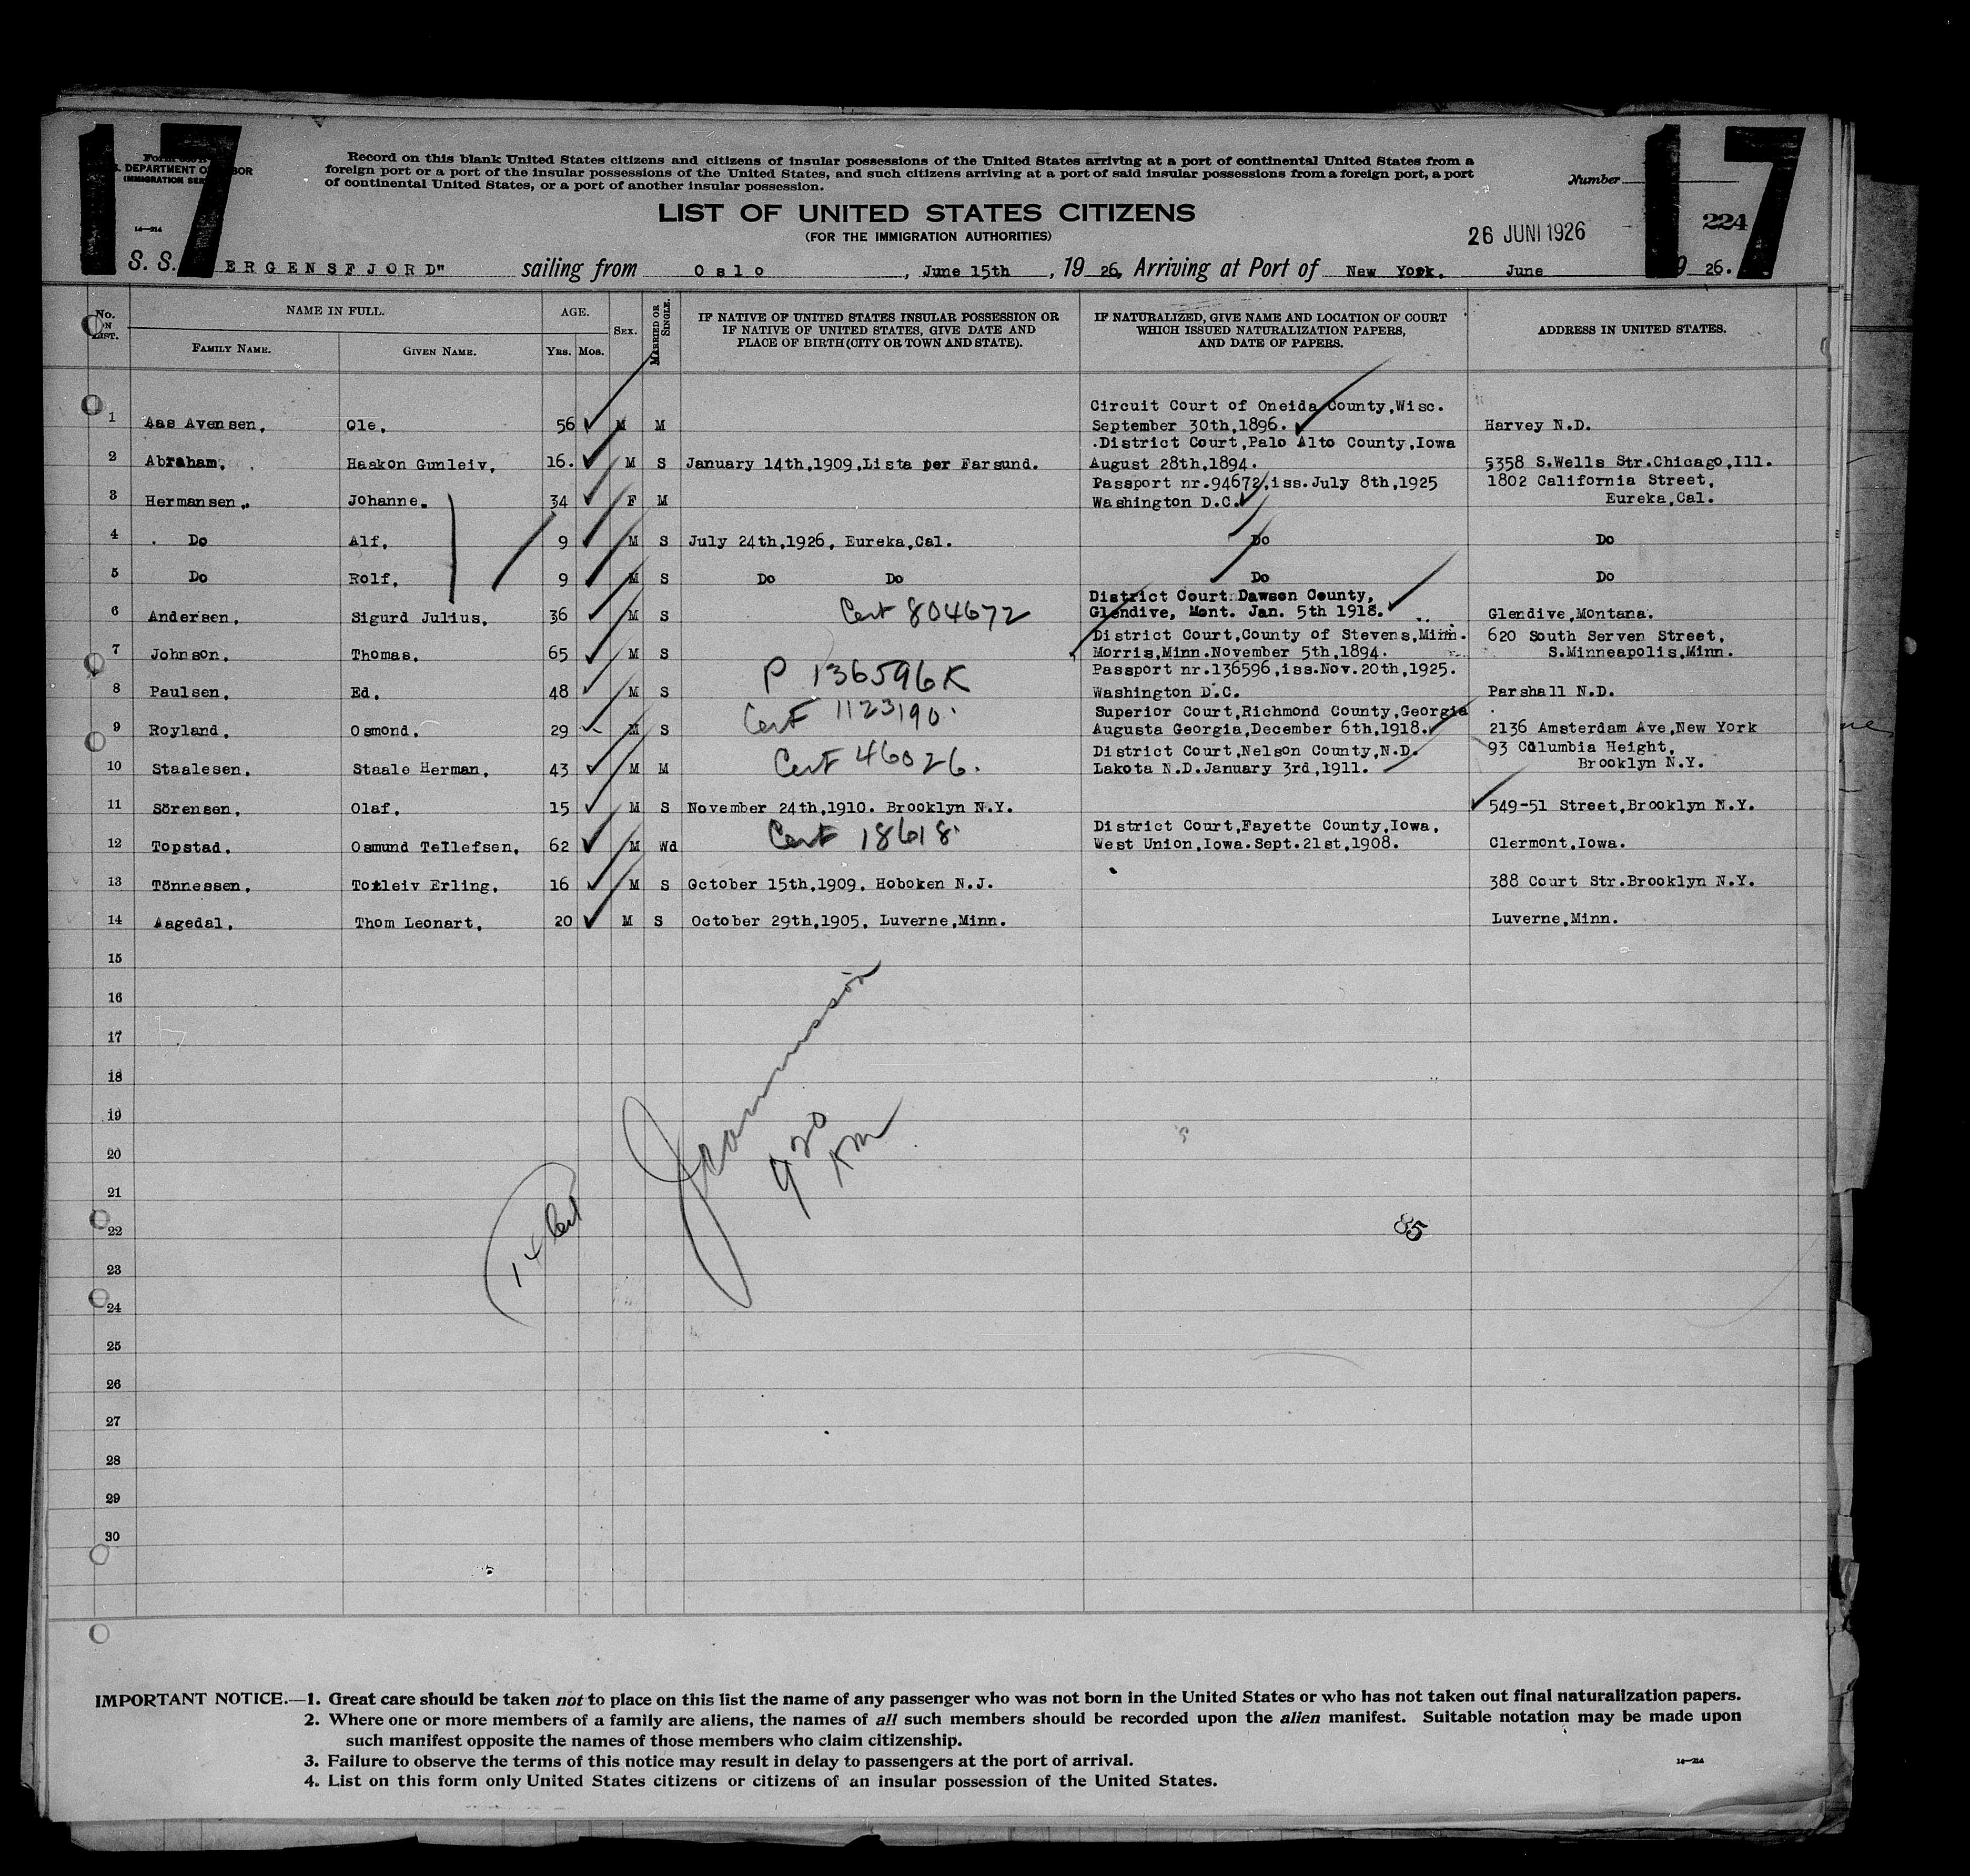 17
17
DEPARTMENT OF
IMMIGRATION
14—214
Record on this blank United States citizens and citizens of insular possessions of the United States arriving at a port of continental United States from a
foreign port or a port of the insular possessions of the United States, and such citizens arriving at a port of said insular possessions from a foreign port, a port
of continental United States, or a port of another insular possession.
Number
LIST OF UNITED STATES CITIZENS
(FOR THE IMMIGRATION AUTHORITIES)
26 JUNI 1926
224
S. S. ERGENSFJORD" sailing from Oslo, June 15th, 1926, Arriving at Port of New York, June 9 26.
No. ON LIST. NAME IN FULL. AGE. SEX. MARRIED OR SINGLE. IF NATIVE OF UNITED STATES INSULAR POSSESSION OR IF NATIVE OF UNITED STATES, GIVE DATE AND PLACE OF BIRTH (CITY OR TOWN AND STATE). IF NATURALIZED, GIVE NAME AND LOCATION OF COURT WHICH ISSUED NATURALIZATION PAPERS, AND DATE OF PAPERS. ADDRESS IN UNITED STATES.
FAMILY NAME. GIVEN NAME. YRS. MOS.
Circuit Court of Oneida County,Wisc.
1 Aas Avensen, Ole, 56 M M September 30th,1896. Harvey N.D.
.District Court,Palo Alto County,Iowa
2 Abraham, Haakon Gunleiv, 16. M S January 14th,1909,Lista per Farsund. August 28th,1894. 5358 S.Wells Str.Chicago,Ill.
Passport nr.94672,iss.July 8th,1925 1802 California Street,
3 Hermansen, Johanne, 34 F M Washington D.C. Eureka,Cal.
4 Do Alf, 9 M S July 24th,1926, Eureka,Cal. Do Do
5 Do Rolf, 9 M S Do Do Do Do
District Court Dawson County,
6 Andersen, Sigurd Julius, 36 M S Cert 804672 Glendive, Mont. Jan. 5th 1918. Glendive,Montana.
District Court,County of Stevens,Minn. 620 South Serven Street,
7 Johnson, Thomas, 65 M S Morris,Minn.November 5th,1894. S.Minneapolis,Minn.
P 136596K Passport nr.136596,iss.Nov.20th,1925.
8 Paulsen, Ed, 48 M S Washington D.C. Parshall N.D.
Cert 1123190 Superior Court,Richmond County,Georgia
9 Royland, Osmond, 29 M S Augusta Georgia,December 6th,1918. 2136 Amsterdam Ave,New York
Cert 46026. District Court,Nelson County,N.D. 93 Columbia Height,
10 Staalesen, Staale Herman, 43 M M Lakota N.D.January 3rd,1911. Brooklyn N.Y.
11 Sörensen, Olaf, 15 M S November 24th,1910. Brooklyn N.Y. 549-51 Street,Brooklyn N.Y.
Cert 18618 District Court,Fayette County,Iowa,
12 Topstad, Osmund Tellefsen, 62 M Wd West Union,Iowa.Sept.21st,1908. Clermont,Iowa.
13 Tönnessen, Totleiv Erling, 16 M S October 15th,1909, Hoboken N.J. 388 Court Str.Brooklyn N.Y.
14 Aagedal, Thom Leonart, 20 M S October 29th,1905, Luverne,Minn. Luverne,Minn.
15
16
17
18
19
20
21
22
23
24
25
26
27
28
29
30
9 20
PM
14
85
IMPORTANT NOTICE.—1. Great care should be taken not to place on this list the name of any passenger who was not born in the United States or who has not taken out final naturalization papers.
2. Where one or more members of a family are aliens, the names of all such members should be recorded upon the alien manifest. Suitable notation may be made upon
such manifest opposite the names of those members who claim citizenship.
3. Failure to observe the terms of this notice may result in delay to passengers at the port of arrival.
14—214
4. List on this form only United States citizens or citizens of an insular possession of the United States.